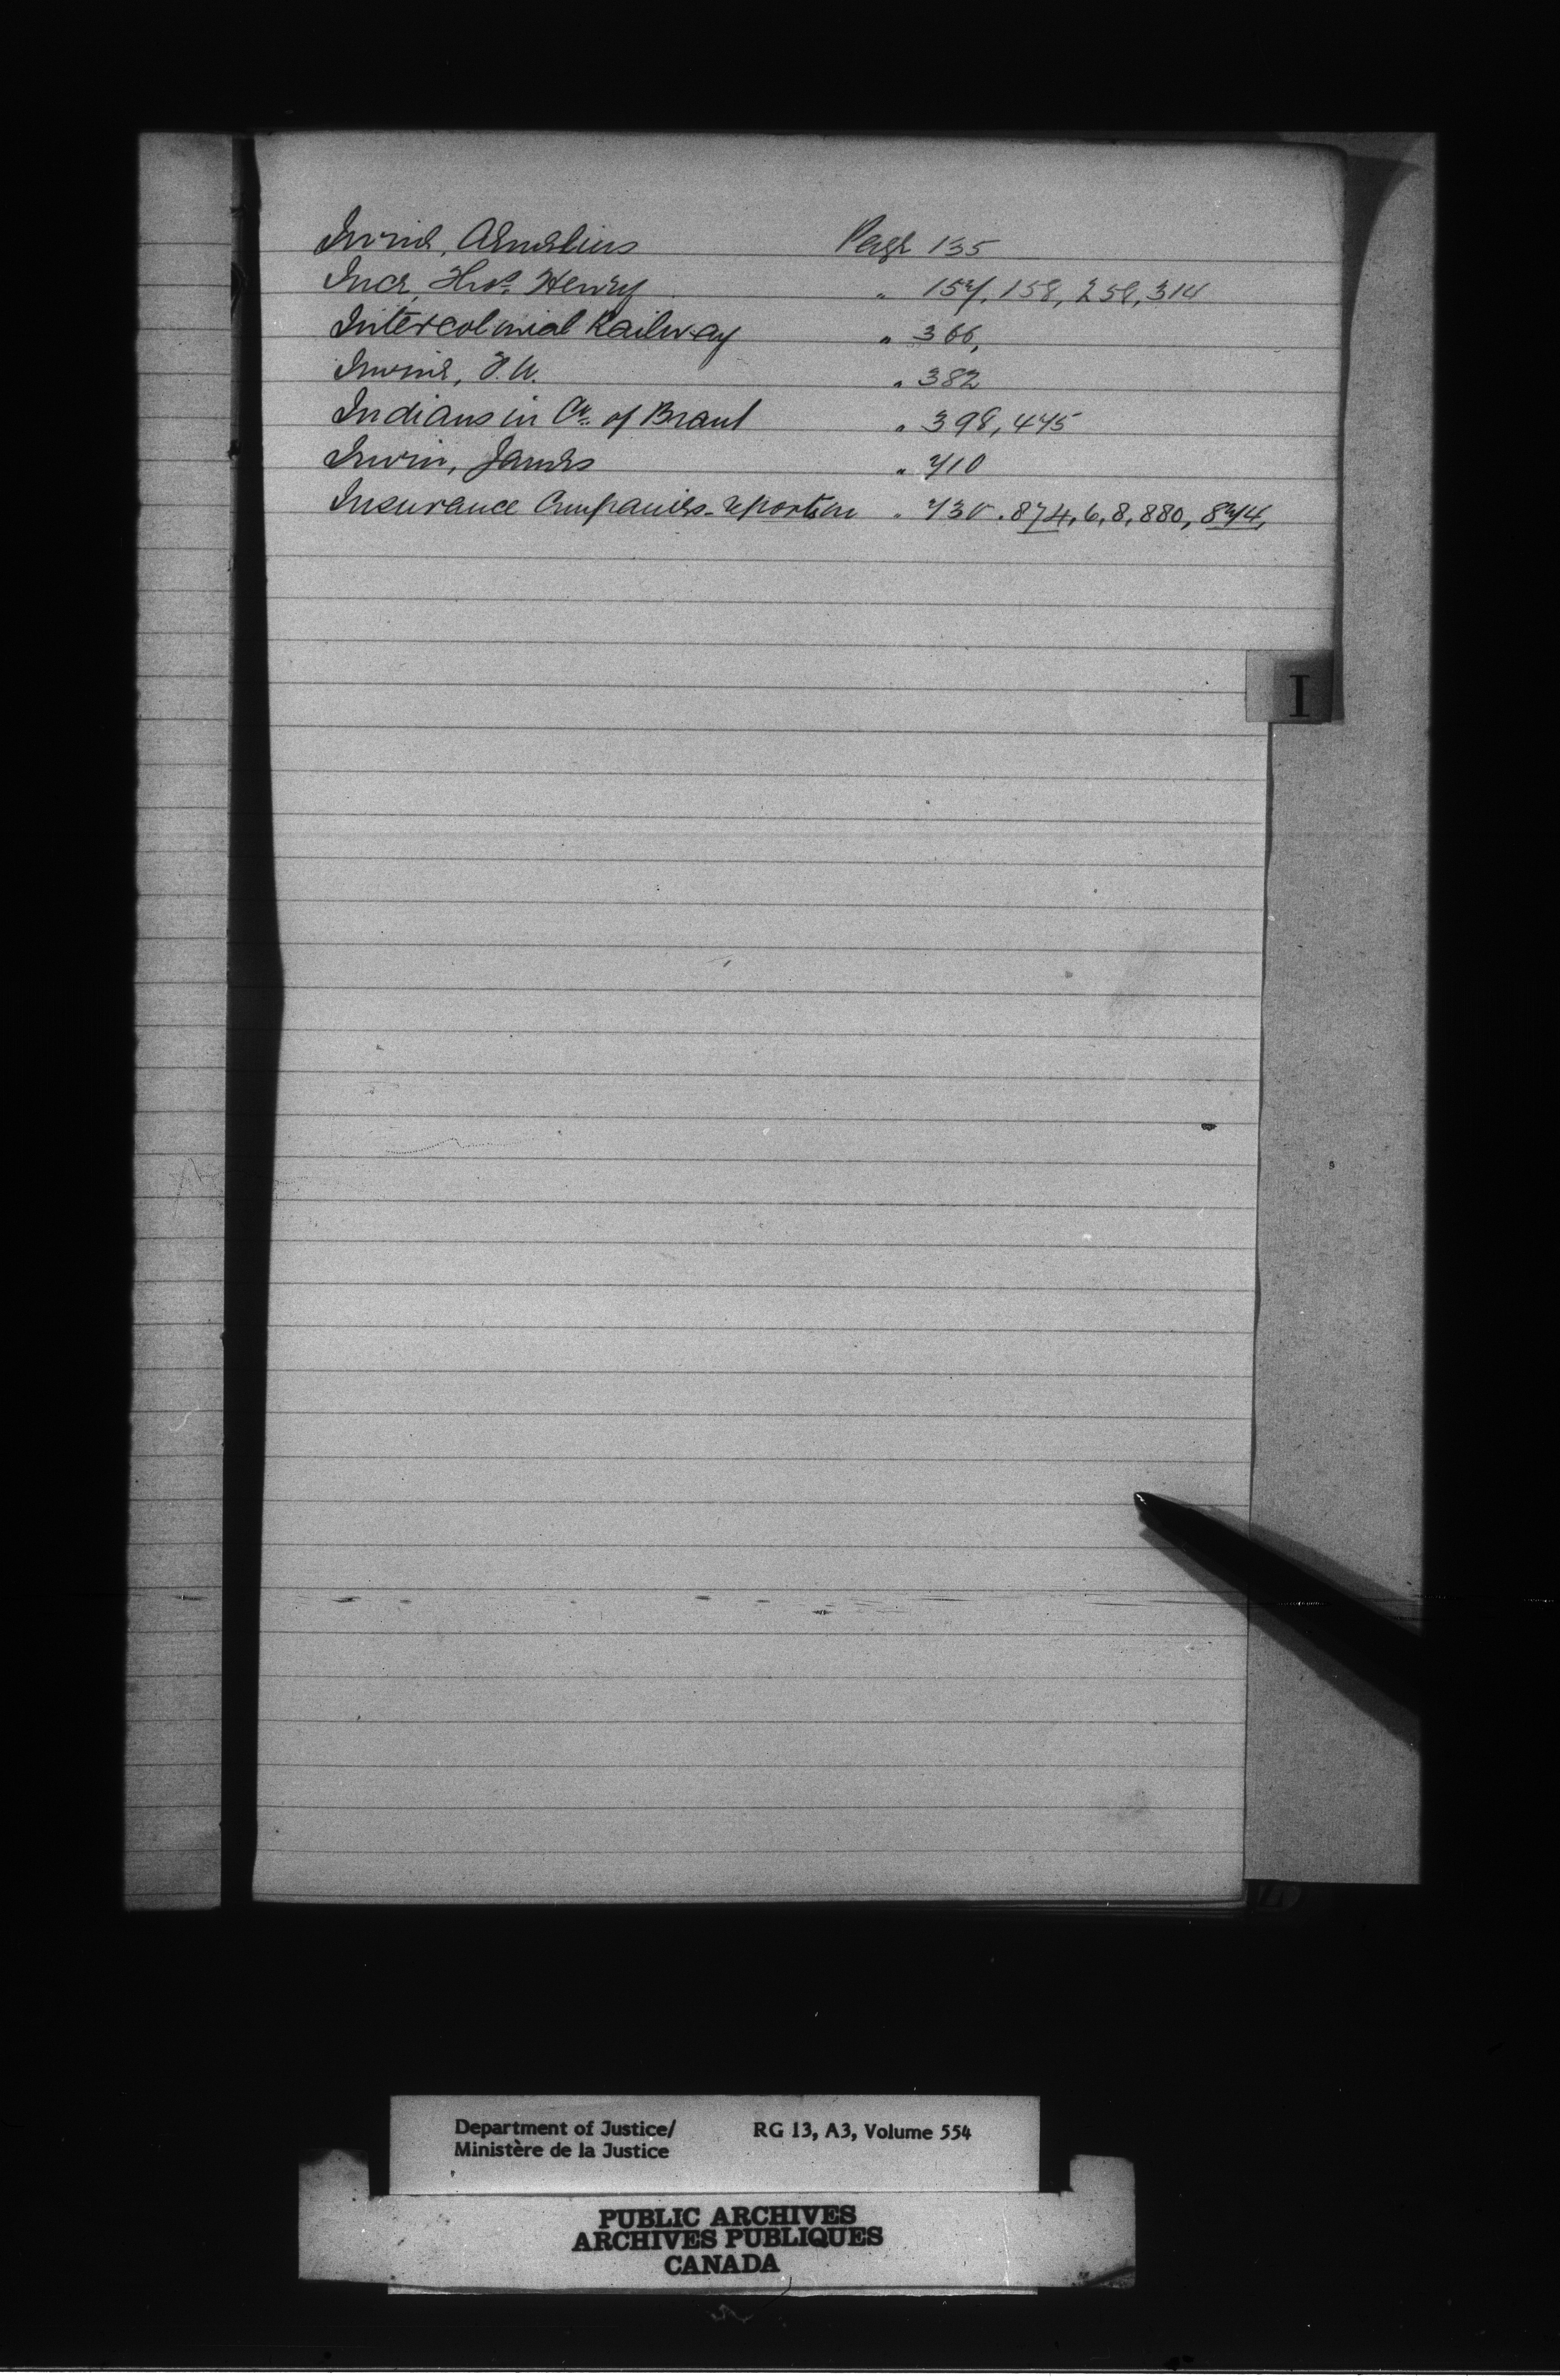 Irvine, Aemelius Page 135
Ince, Thos. Henry " 157, 158, 258, 314
Intercolonial Railway " 366,
Irvine, " 382
Indians in Co. of Brant " 398, 475
Irwin, James " 710
Insurance Companies - report on " 730. 874, 6, 8, 880, 874,
I
Department of Justice/ RG 13, A3, Volume 554
Ministère de la Justice
PUBLIC ARCHIVES
ARCHIVES PUBLIQUES
CANADA